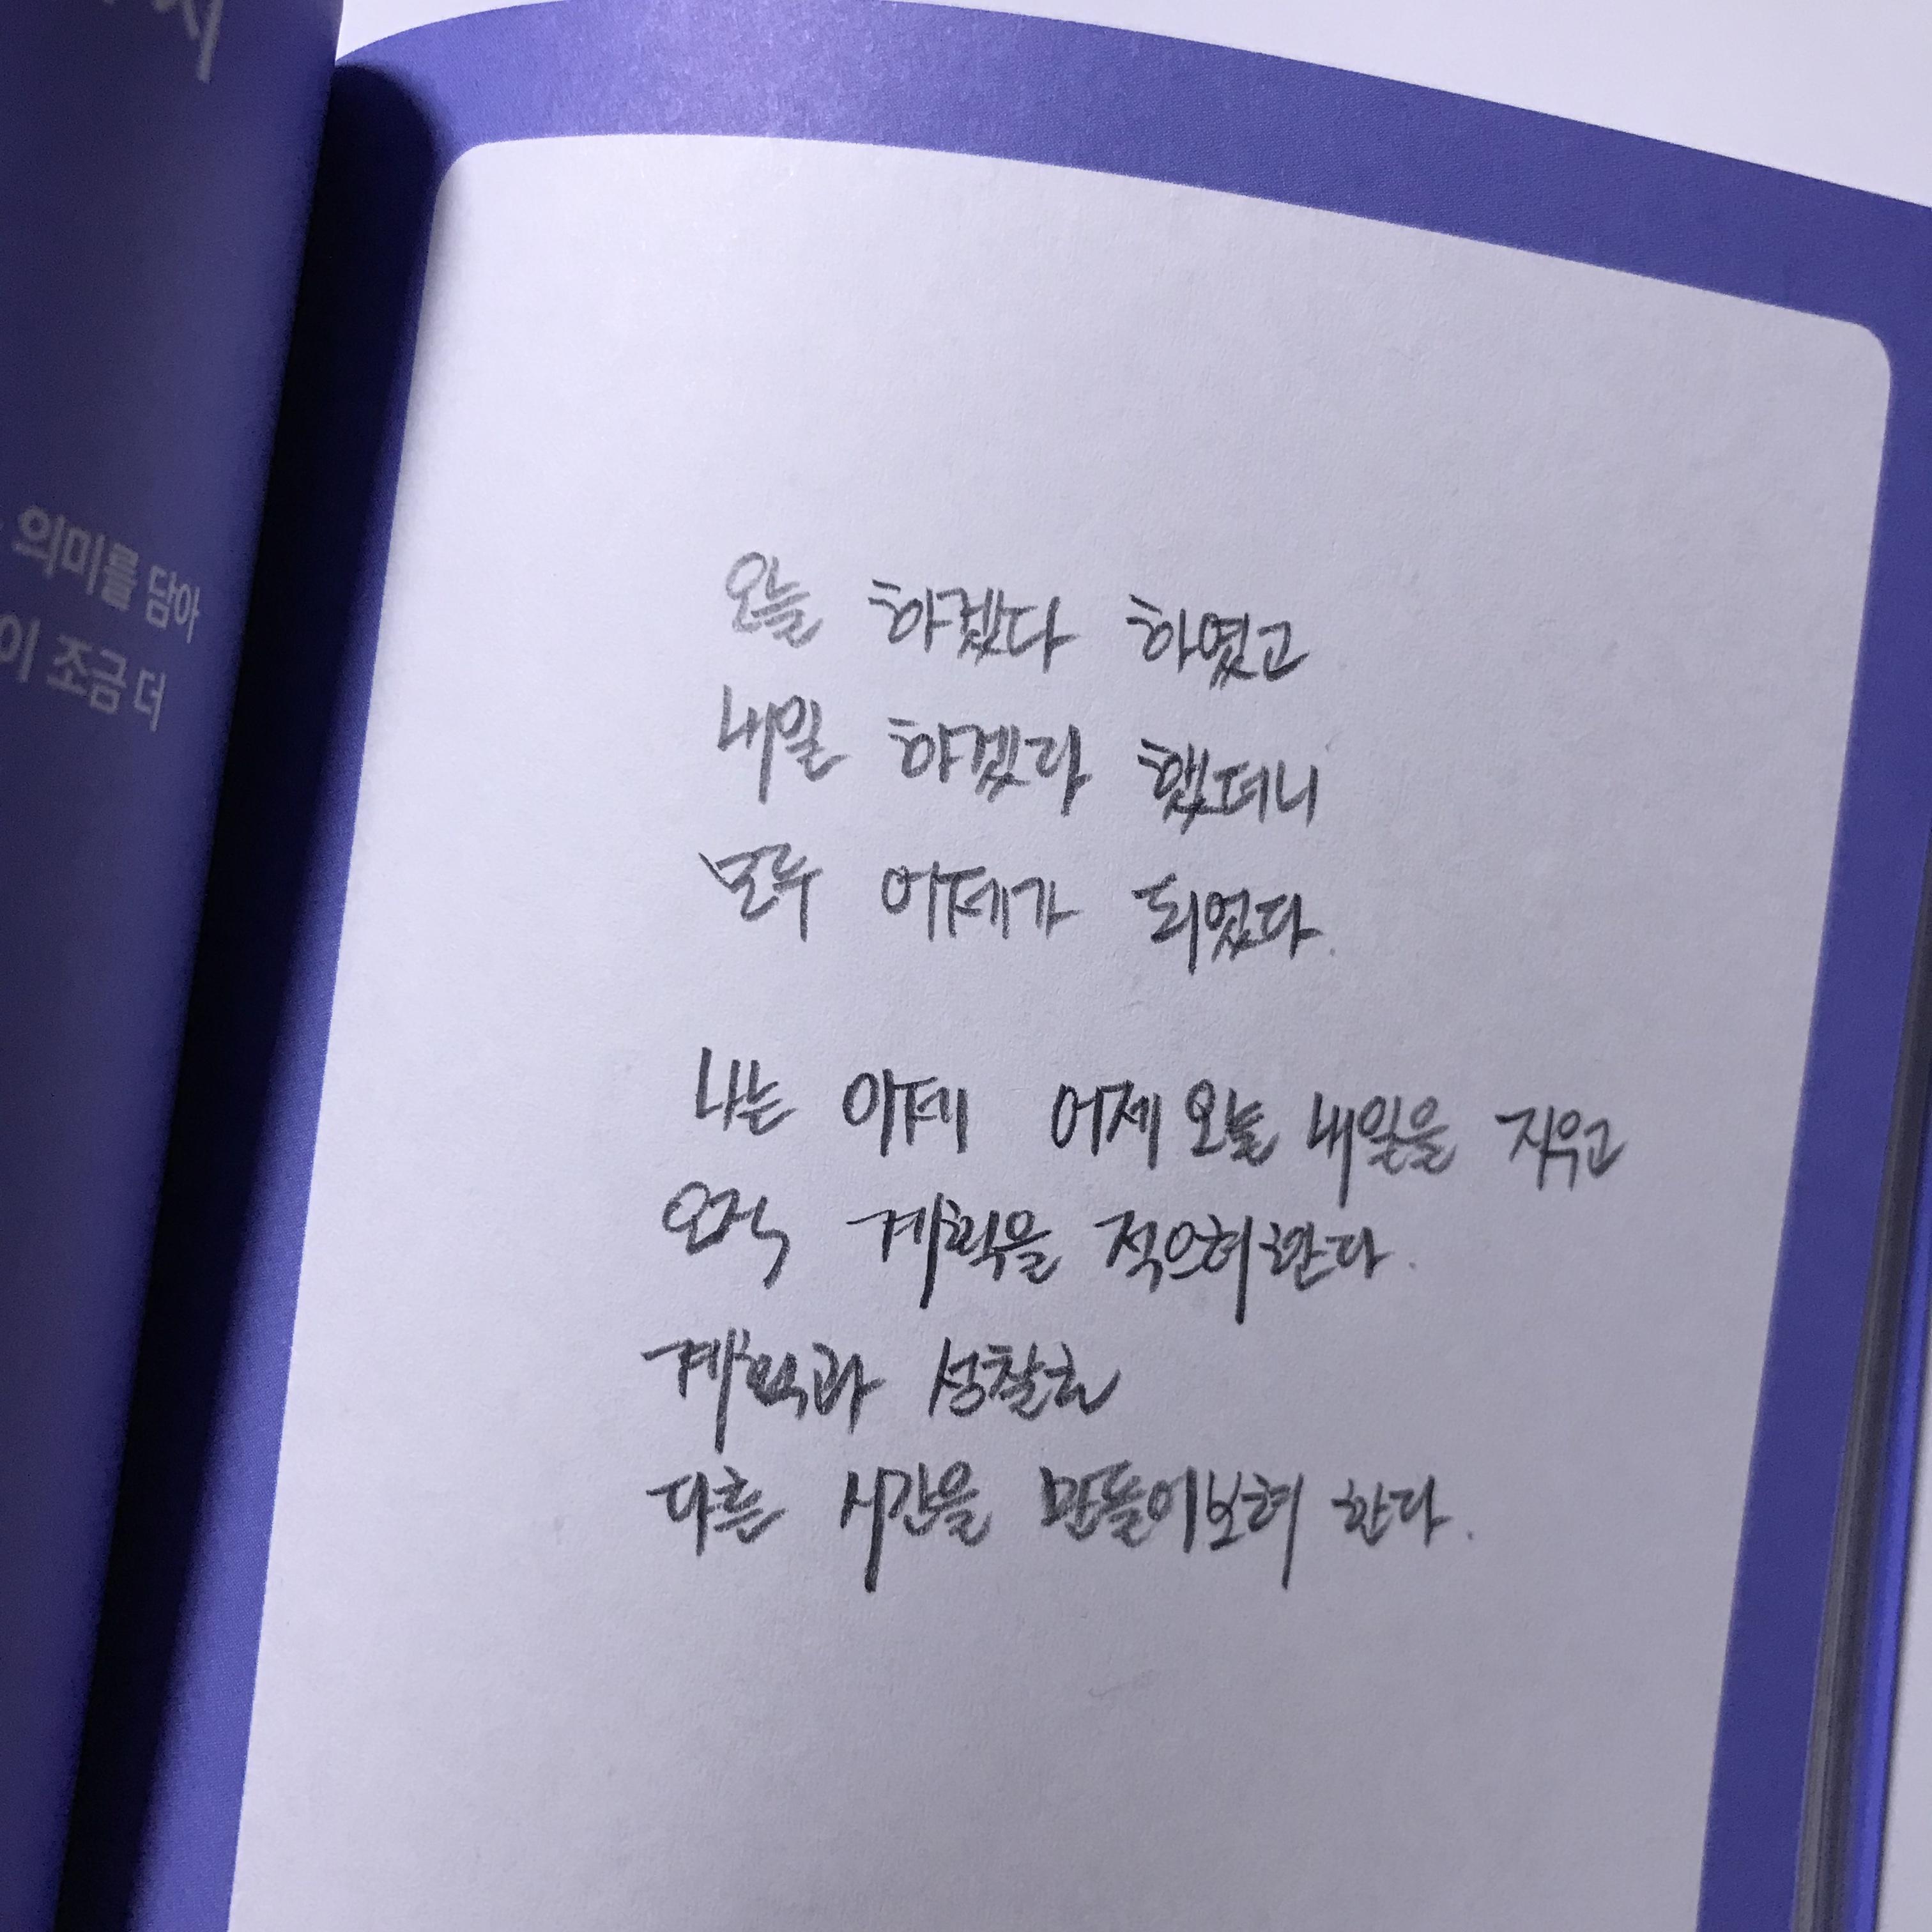 의미를 담아
이 조금 더
오늘 하겠다 하였고
내일 하겠다 했더니
모두 어제가 되었다.
나는 이제 어제 오늘 내일을 지우고
오직 계획을 적으려한다.
계획과 성찰로
다른 시간을 만들어보려 한다.